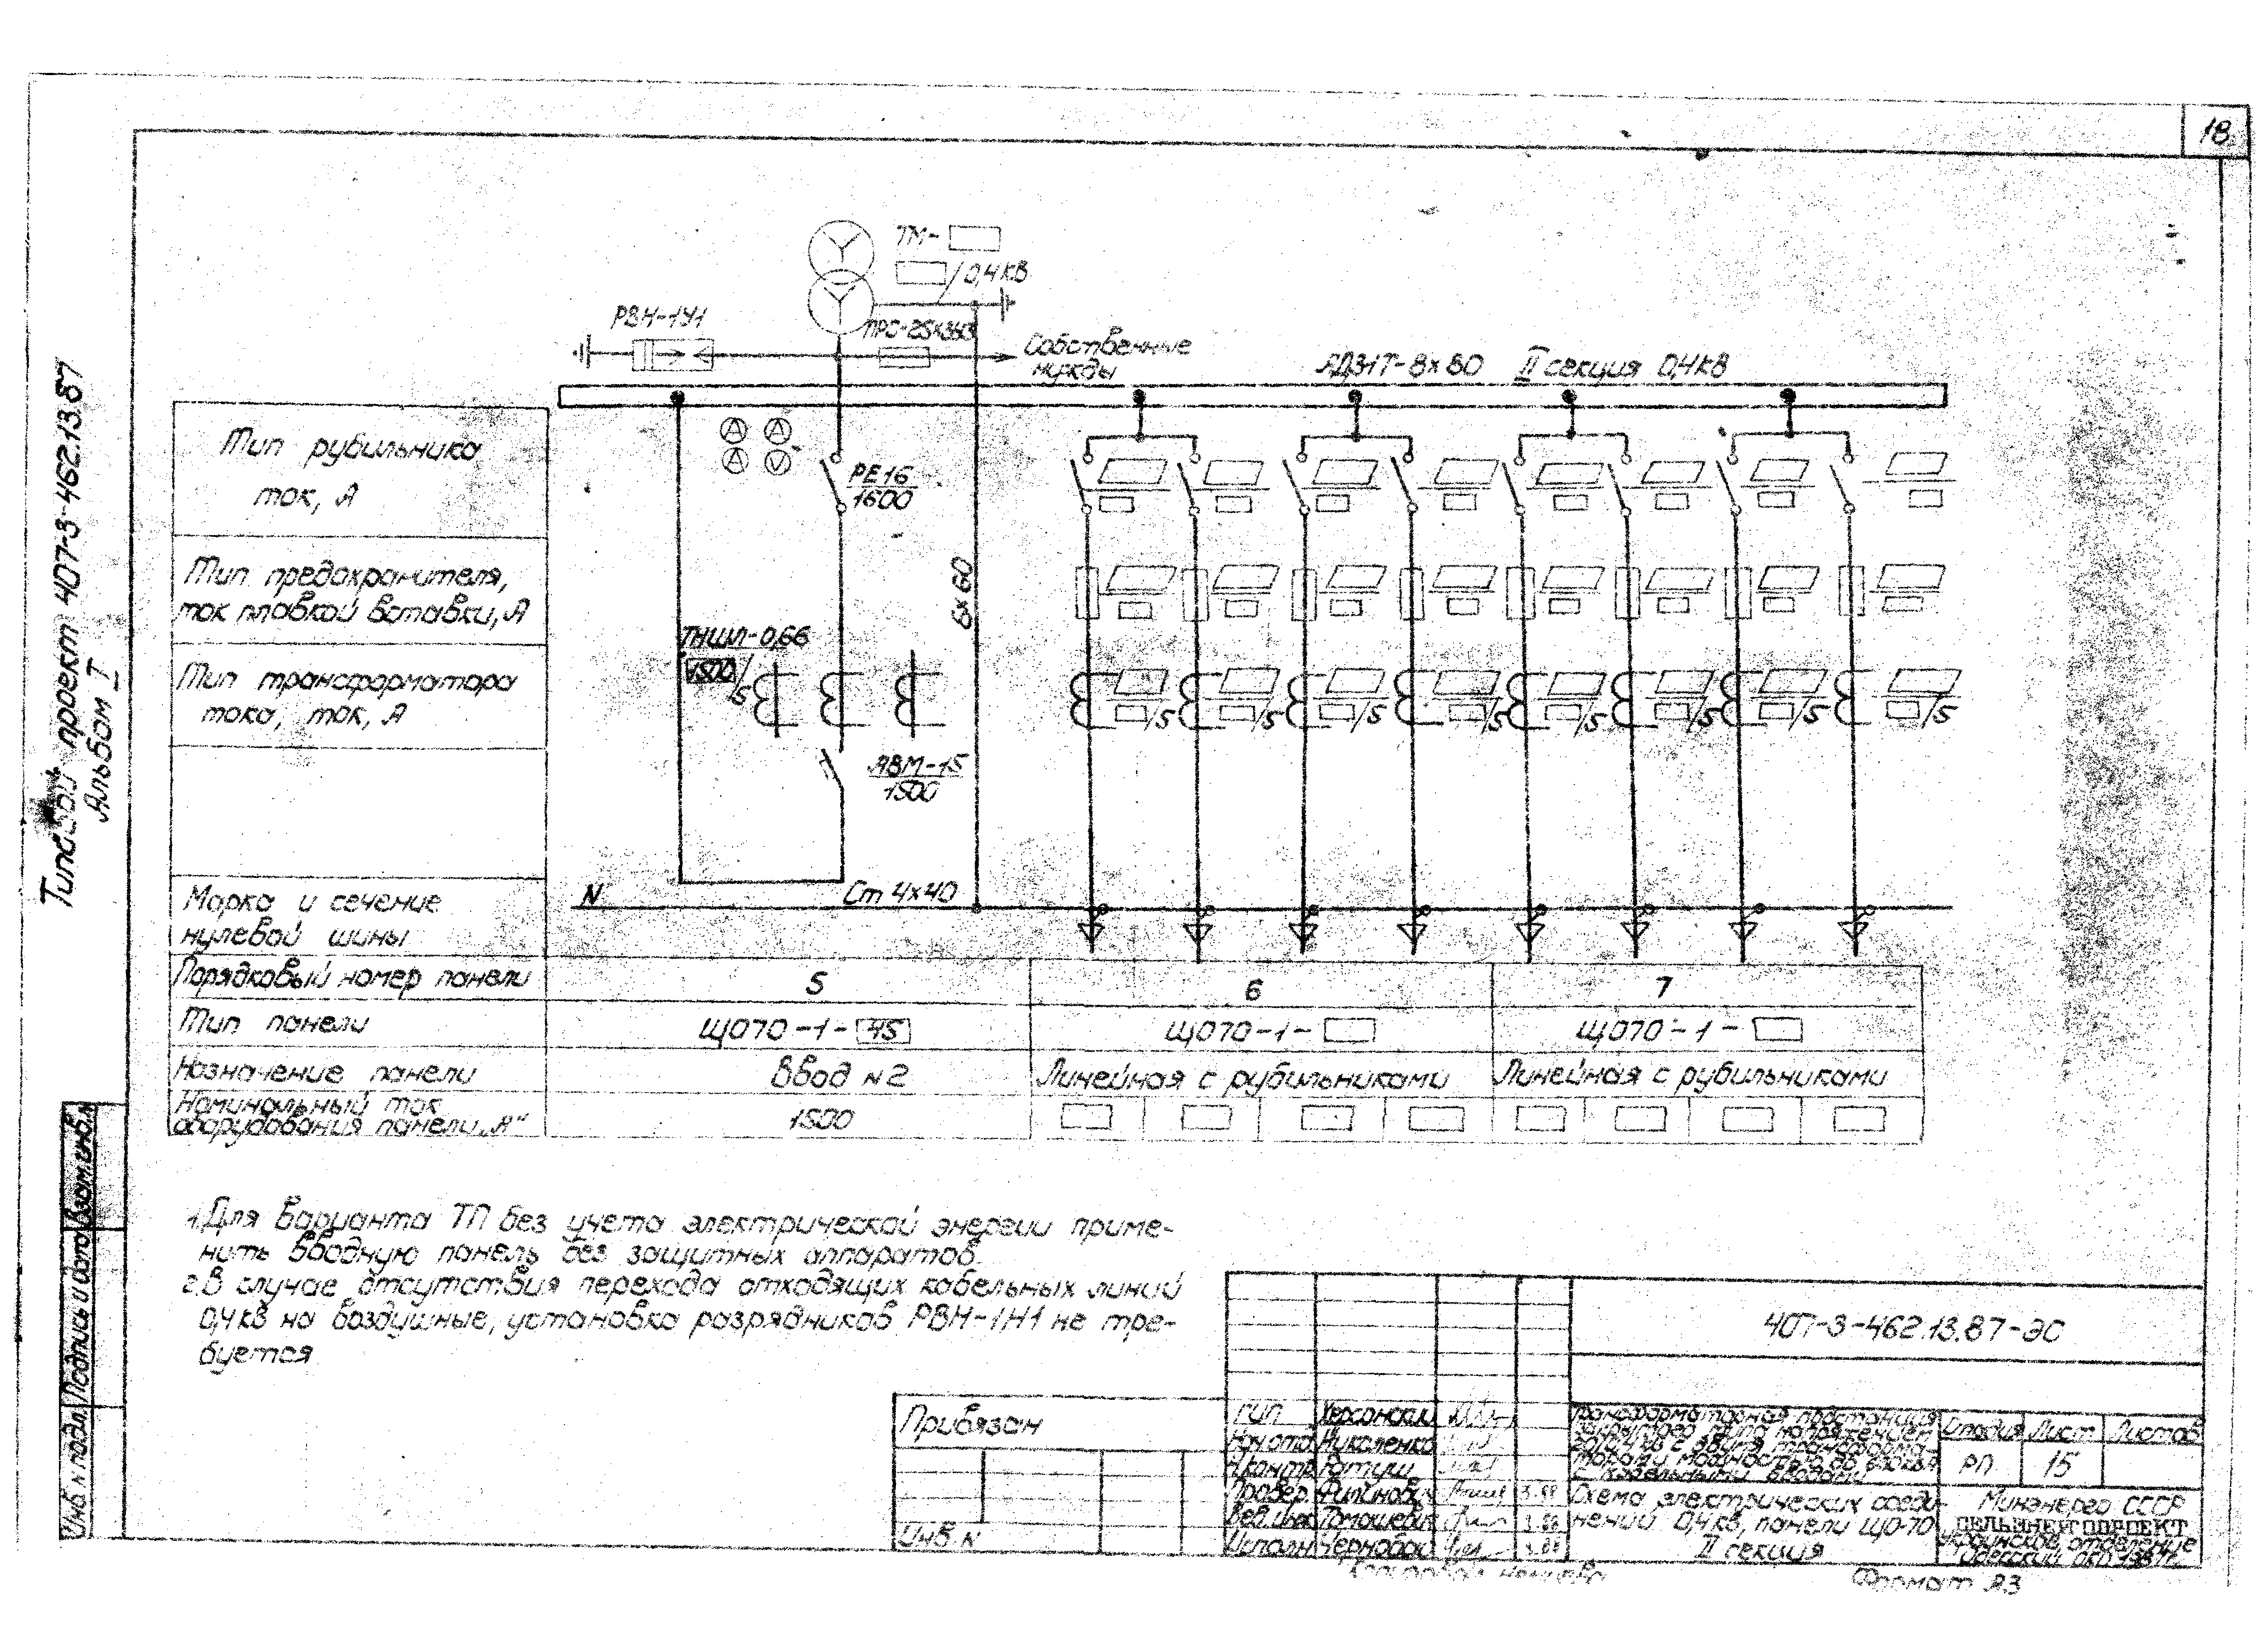 18
Типовой проект 407-3-462.13.87
Альбом I
ТМ-
/0,4кВ
РВН-1У1
Собственные
нужды
АД31Т-8х80 II секция 0,4кВ
Тип рубильника
ток, А
A A
A V
РЕ16
1600
Тип предохранителя,
ток плавкой вставки, А
6х60
ТНШЛ-0,66
1500/5
Тип трансформатора
тока, ток, А
/5 /5 /5 /5 /5 /5 /5 /5
АВМ-15
1500
Марка и сечение
нулевой шины
N Ст 4х40
Порядковый номер панели 5 6 7
Тип панели ЩО70-1-45 ЩО70-1- ЩО70-1-
Назначение панели Ввод N2 Линейная с рубильниками Линейная с рубильниками
Номинальный ток
оборудования панели „А" 1500
1. Для варианта ТП без учета электрической энергии приме-
нить вводную панель без защитных аппаратов.
2. В случае отсутствия перехода отходящих кабельных линий
0,4кВ на воздушные, установка разрядников РВН-1Н1 не тре-
буется
407-3-462.13.87-ЭС
Привязан
Инв. N
ГИП Херсонский
Нач.отд. Николенко
Н.контр. Ратуш
Провер.
Вед.инж.
Исполн. Черновой
Трансформаторная подстанция
закрытого типа напряжением
с двумя трансформа-
торами мощностью до
с кабельными вводами
Стадия Лист Листов
РП 15
Схема электрических соеди-
нений 0,4кВ, панели ЩО-70
II секция
Минэнерго СССР
СЕЛЬЭНЕРГОПРОЕКТ
Украинское отделение
Одесский
Формат А3
Взам.инв.N
Подпись и дата
Инв. N подл.